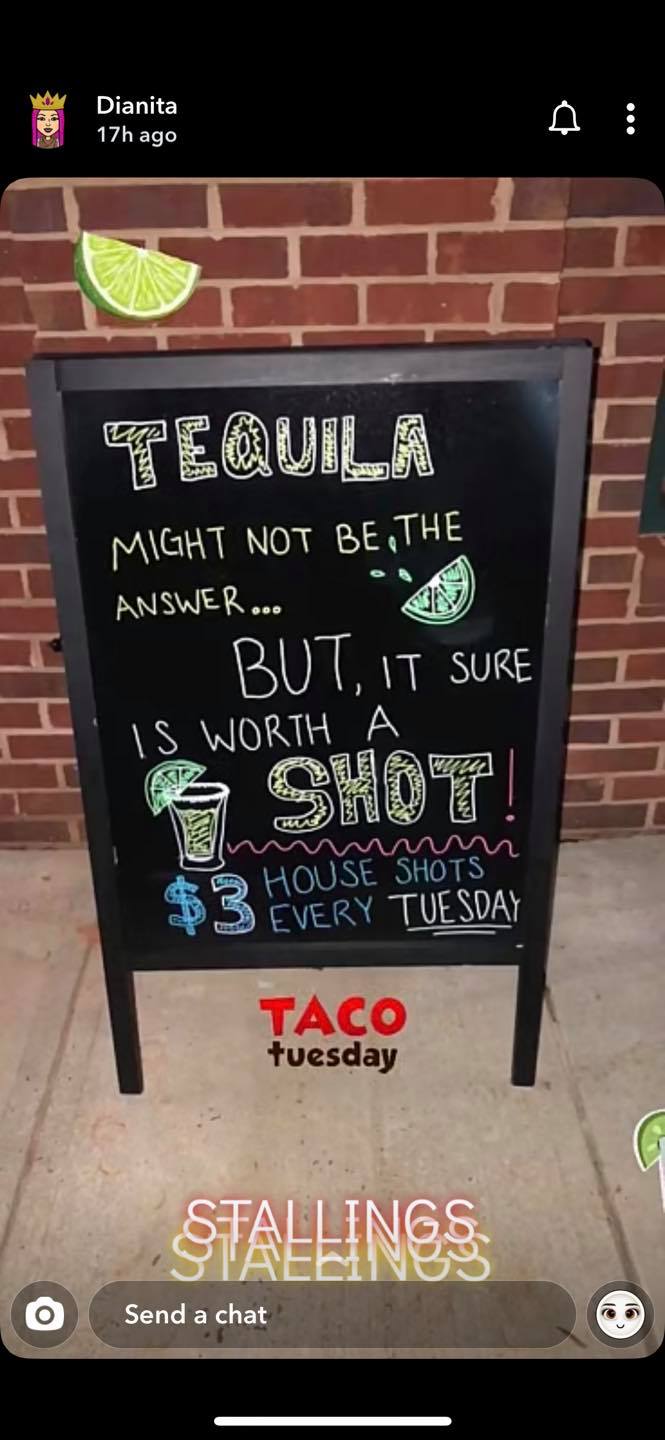 Dianita
17h ago
TEQUILA
MIGHT NOT BE THE
ANSWER...
BUT, IT SURE
IS WORTH A
SHOT!
$3 HOUSE SHOTS
EVERY TUESDAY
TACO
tuesday
STALLINGS
STALLINGS
Send a chat